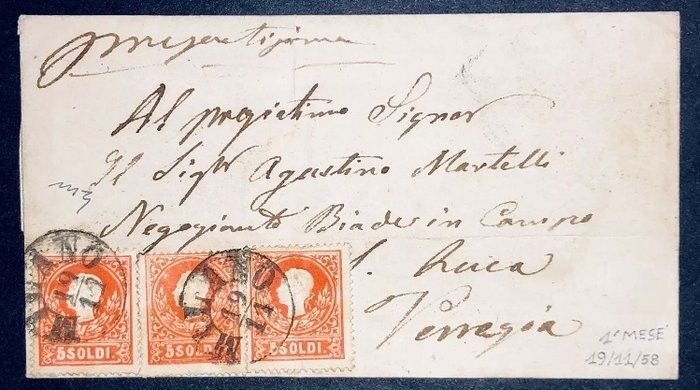 pressantissima
Al pregiatimo Signor
Il Sigʳ Agostino Martelli
Negoziante Biade in Campo
S. Luca
Venezia
MILANO
19
11
MILANO
19
11
5 SOLDI
5 SOLDI
5 SOLDI
1° MESE
19/11/58